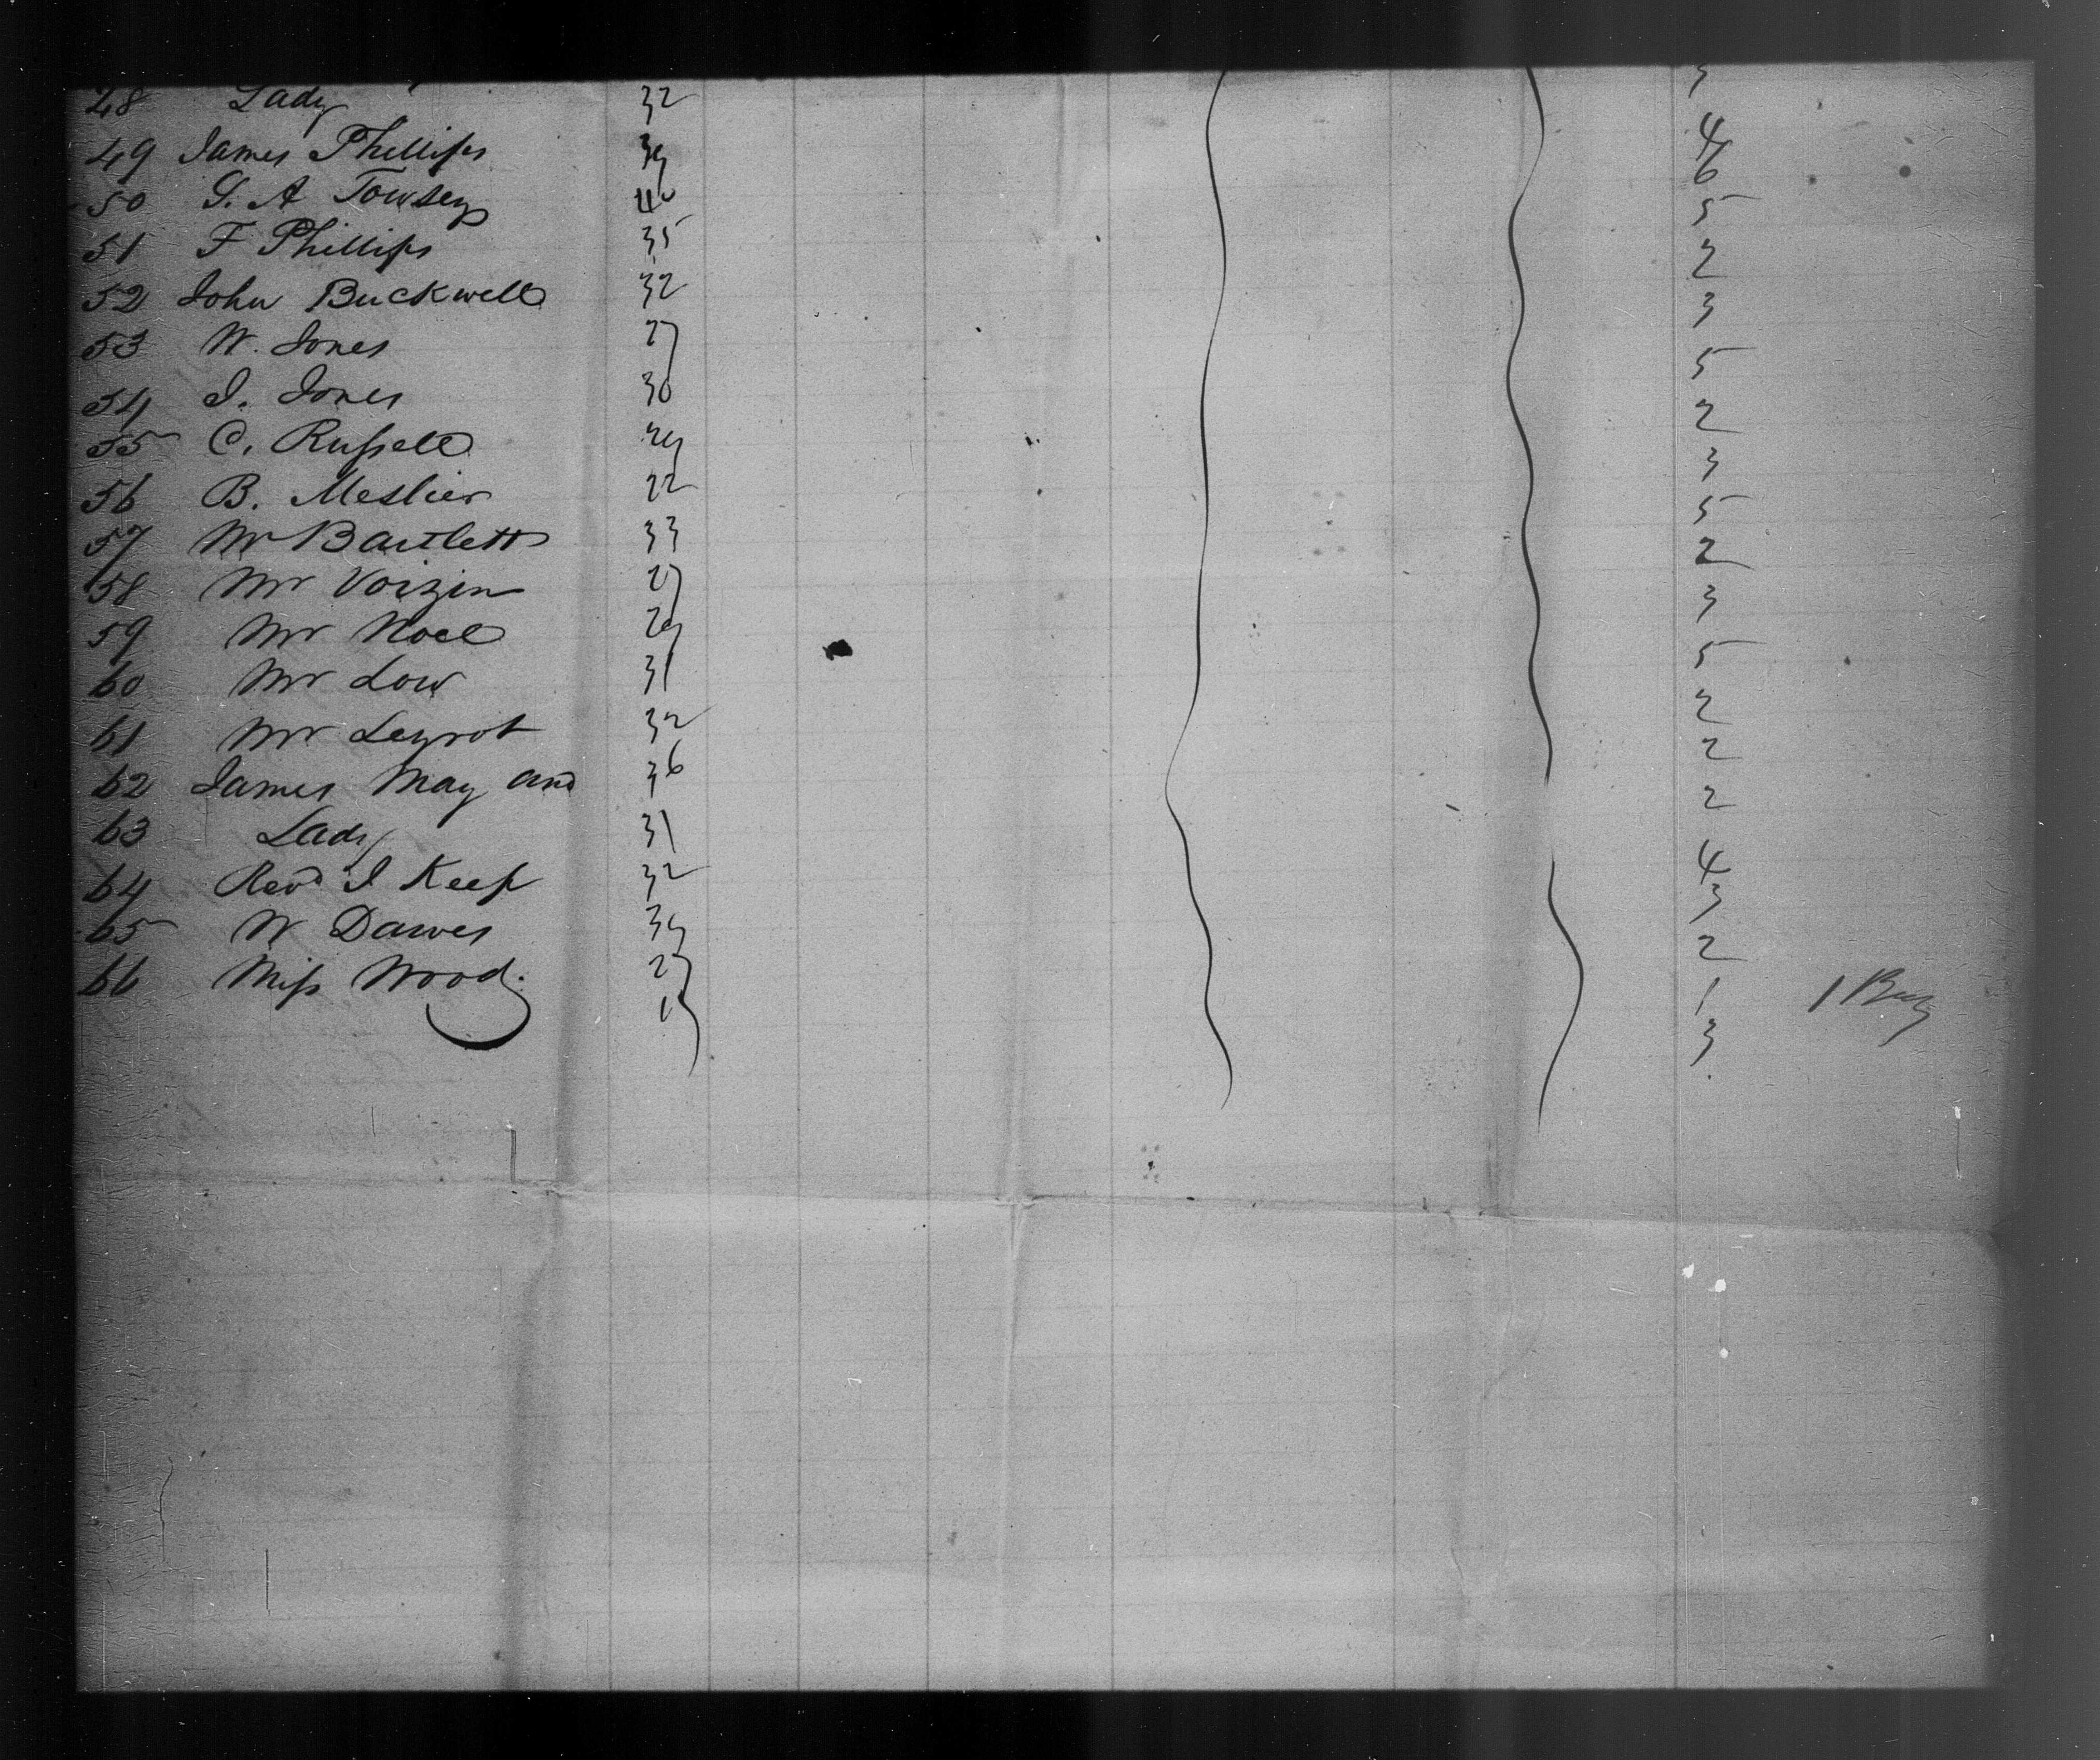 48 Lady 32 3
49 James Phillips 39 4
50 G. A Towsey 40 6
51 F Phillips 35 5
52 John Buckwell 32 2
53 W. Jones 27 3
54 J. Jones 30 5
55 C. Russell 29 2
56 B. Meslier 22 3
57 Mr Bartlett 33 5
58 Mr Voizin 27 2
59 Mr Noel 29 3
60 Mr Low 31 5
61 Mr Leyrot 32 2
62 James May and 36 2
63 Lady 31 2
64 Revd J Keep 32 4
65 W Dawes 39 3
66 Miss Wood. 27 2
1 1
3